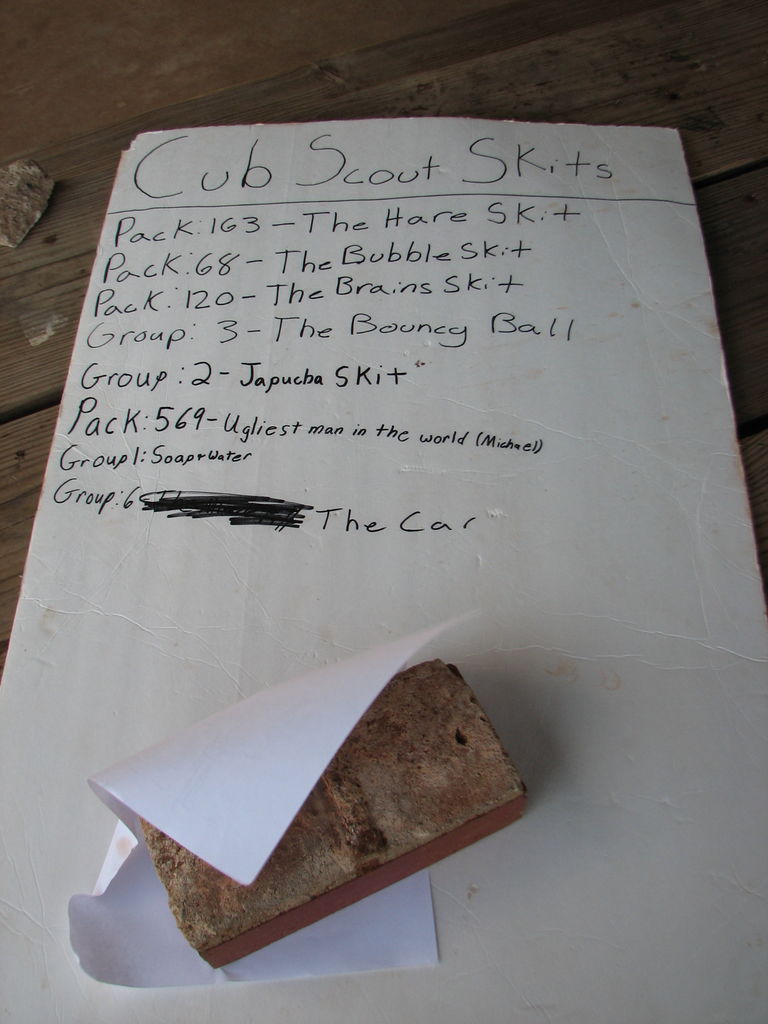 Cub Scout Skits
Pack: 163 - The Hare Skit
Pack: 68 - The Bubble Skit
Pack: 120 - The Brains Skit
Group: 3 - The Bouncy Ball
Group: 2 - Japucha Skit
Pack: 569 - Ugliest man in the world (Michael)
Group 1: Soap + Water
Group: 6 The Car